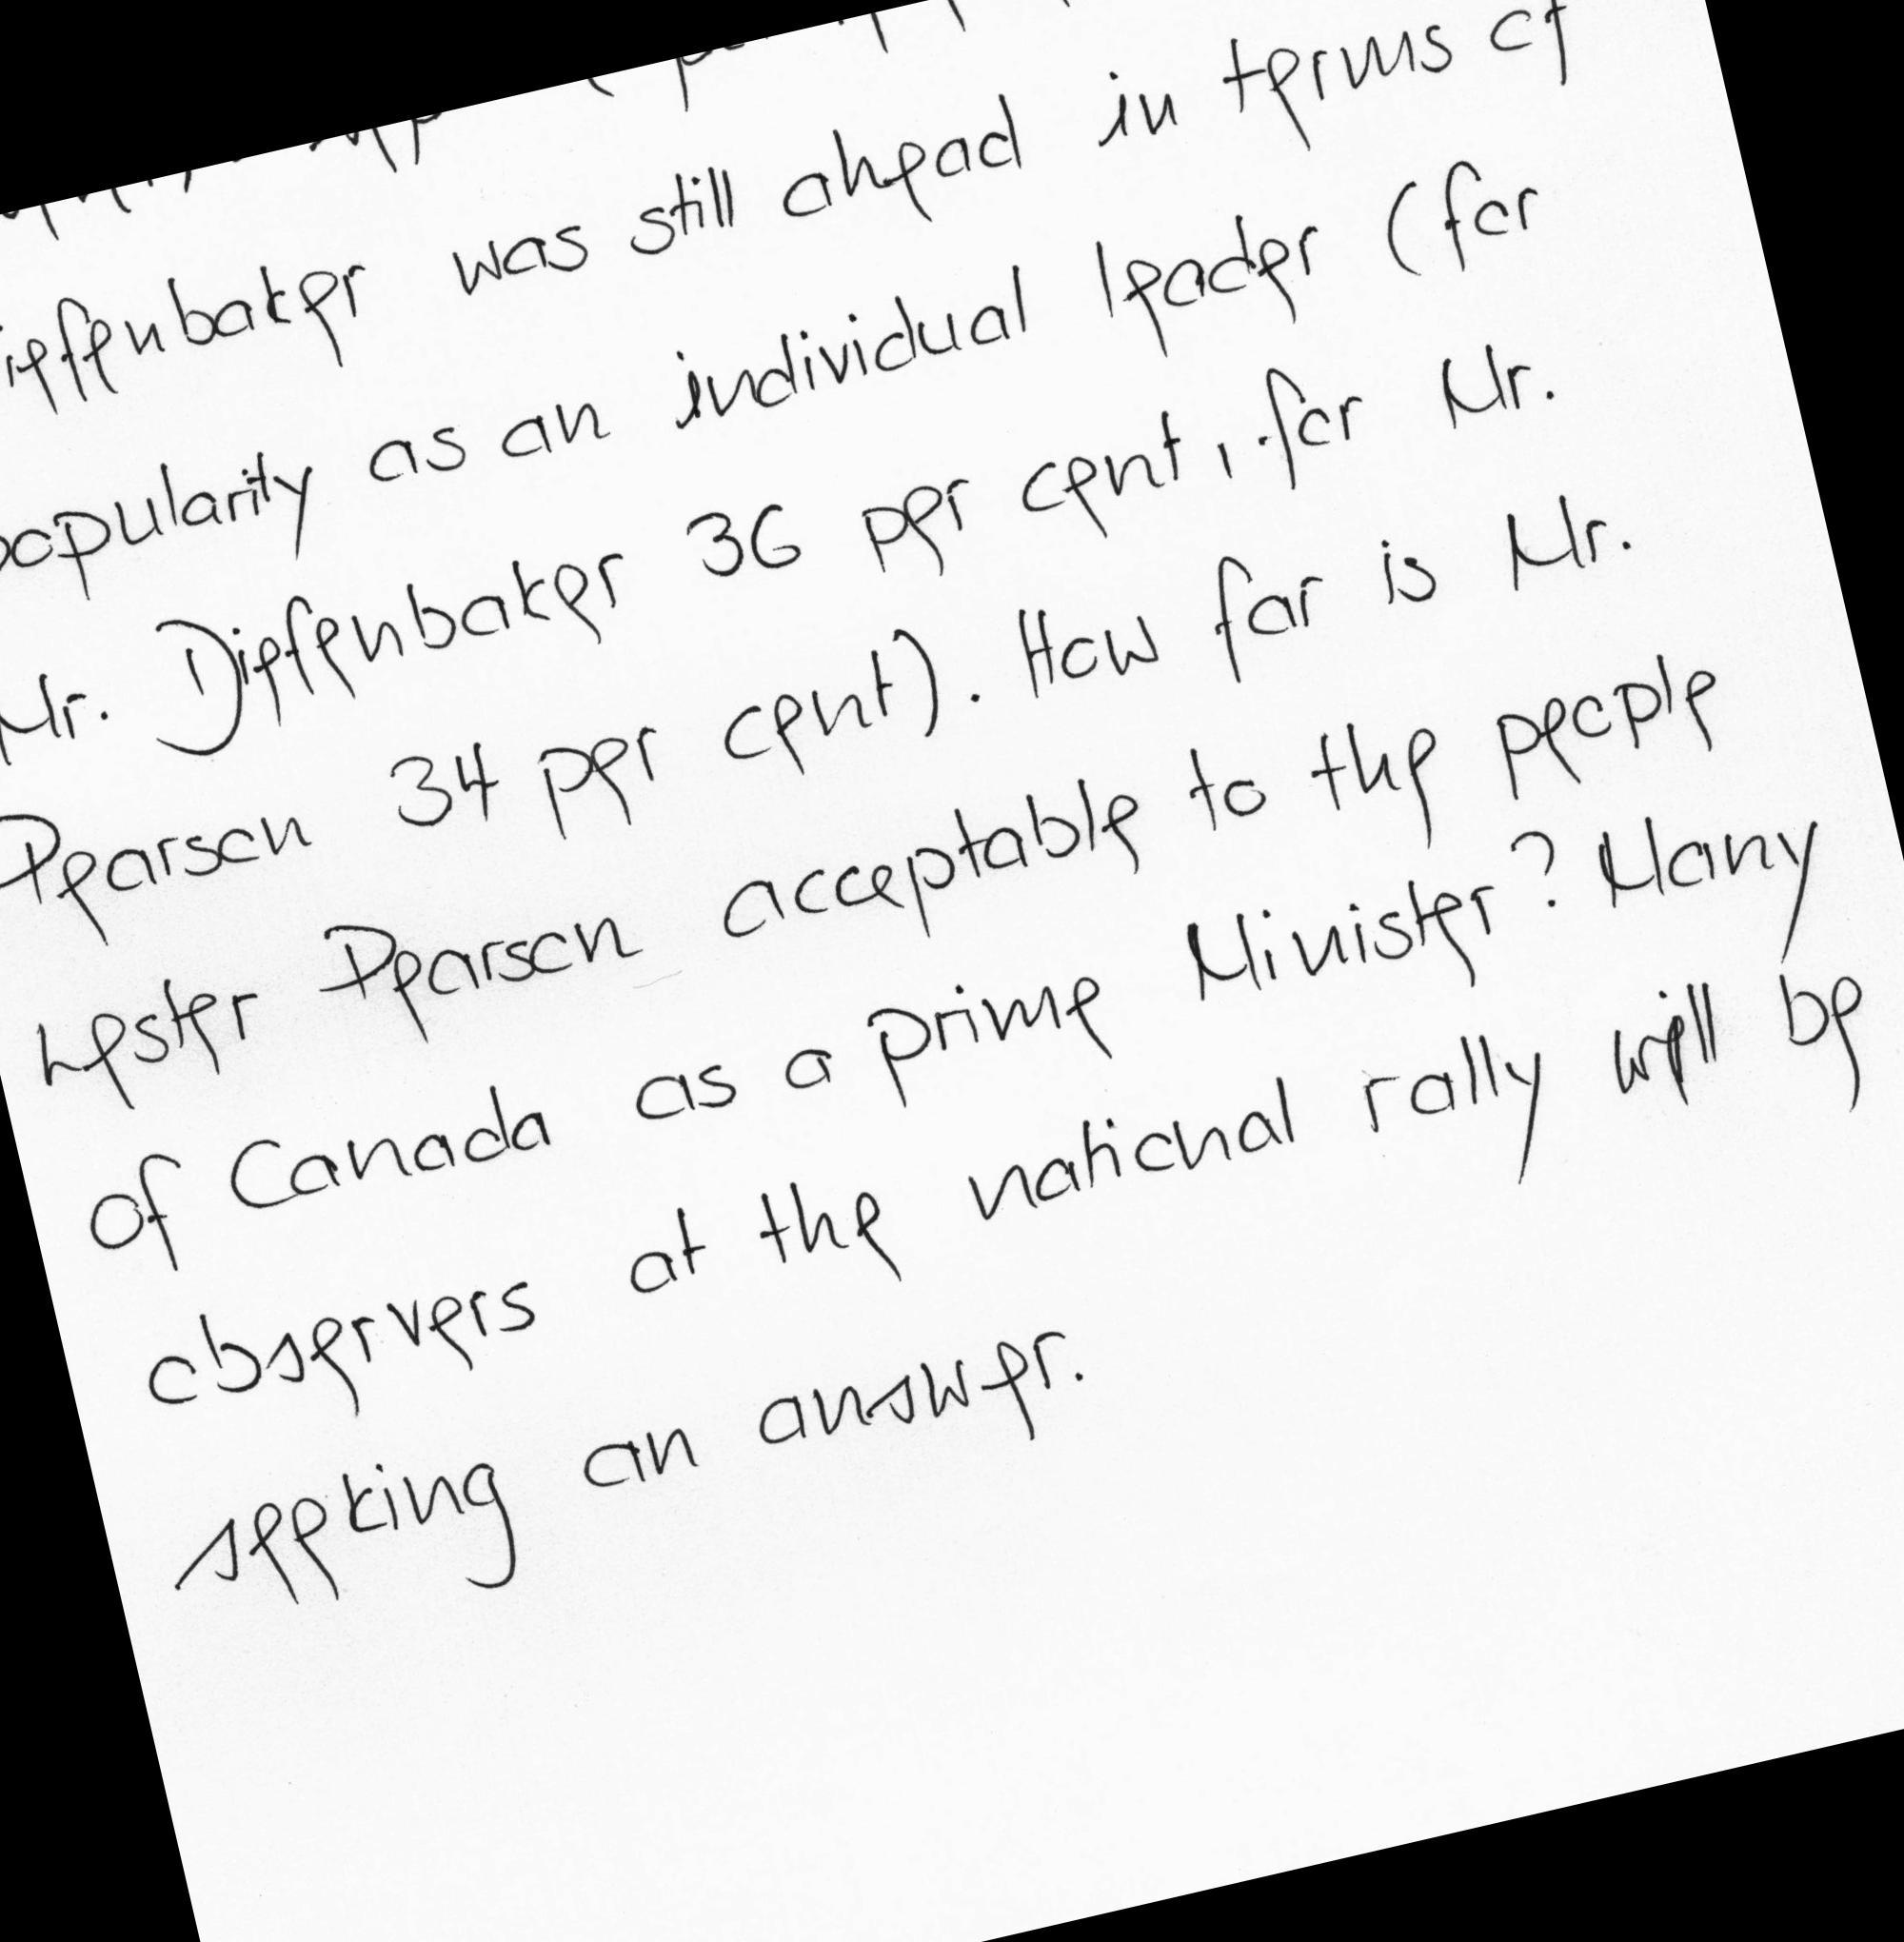 Diefenbaker was still ahead in terms of
popularity as an individual leader (for
Mr. Diefenbaker 36 per cent, for Mr.
Pearson 34 per cent). How far is Mr.
Lester Pearson acceptable to the people
of Canada as a prime Minister? Many
observers at the national rally will be
seeking an answer.